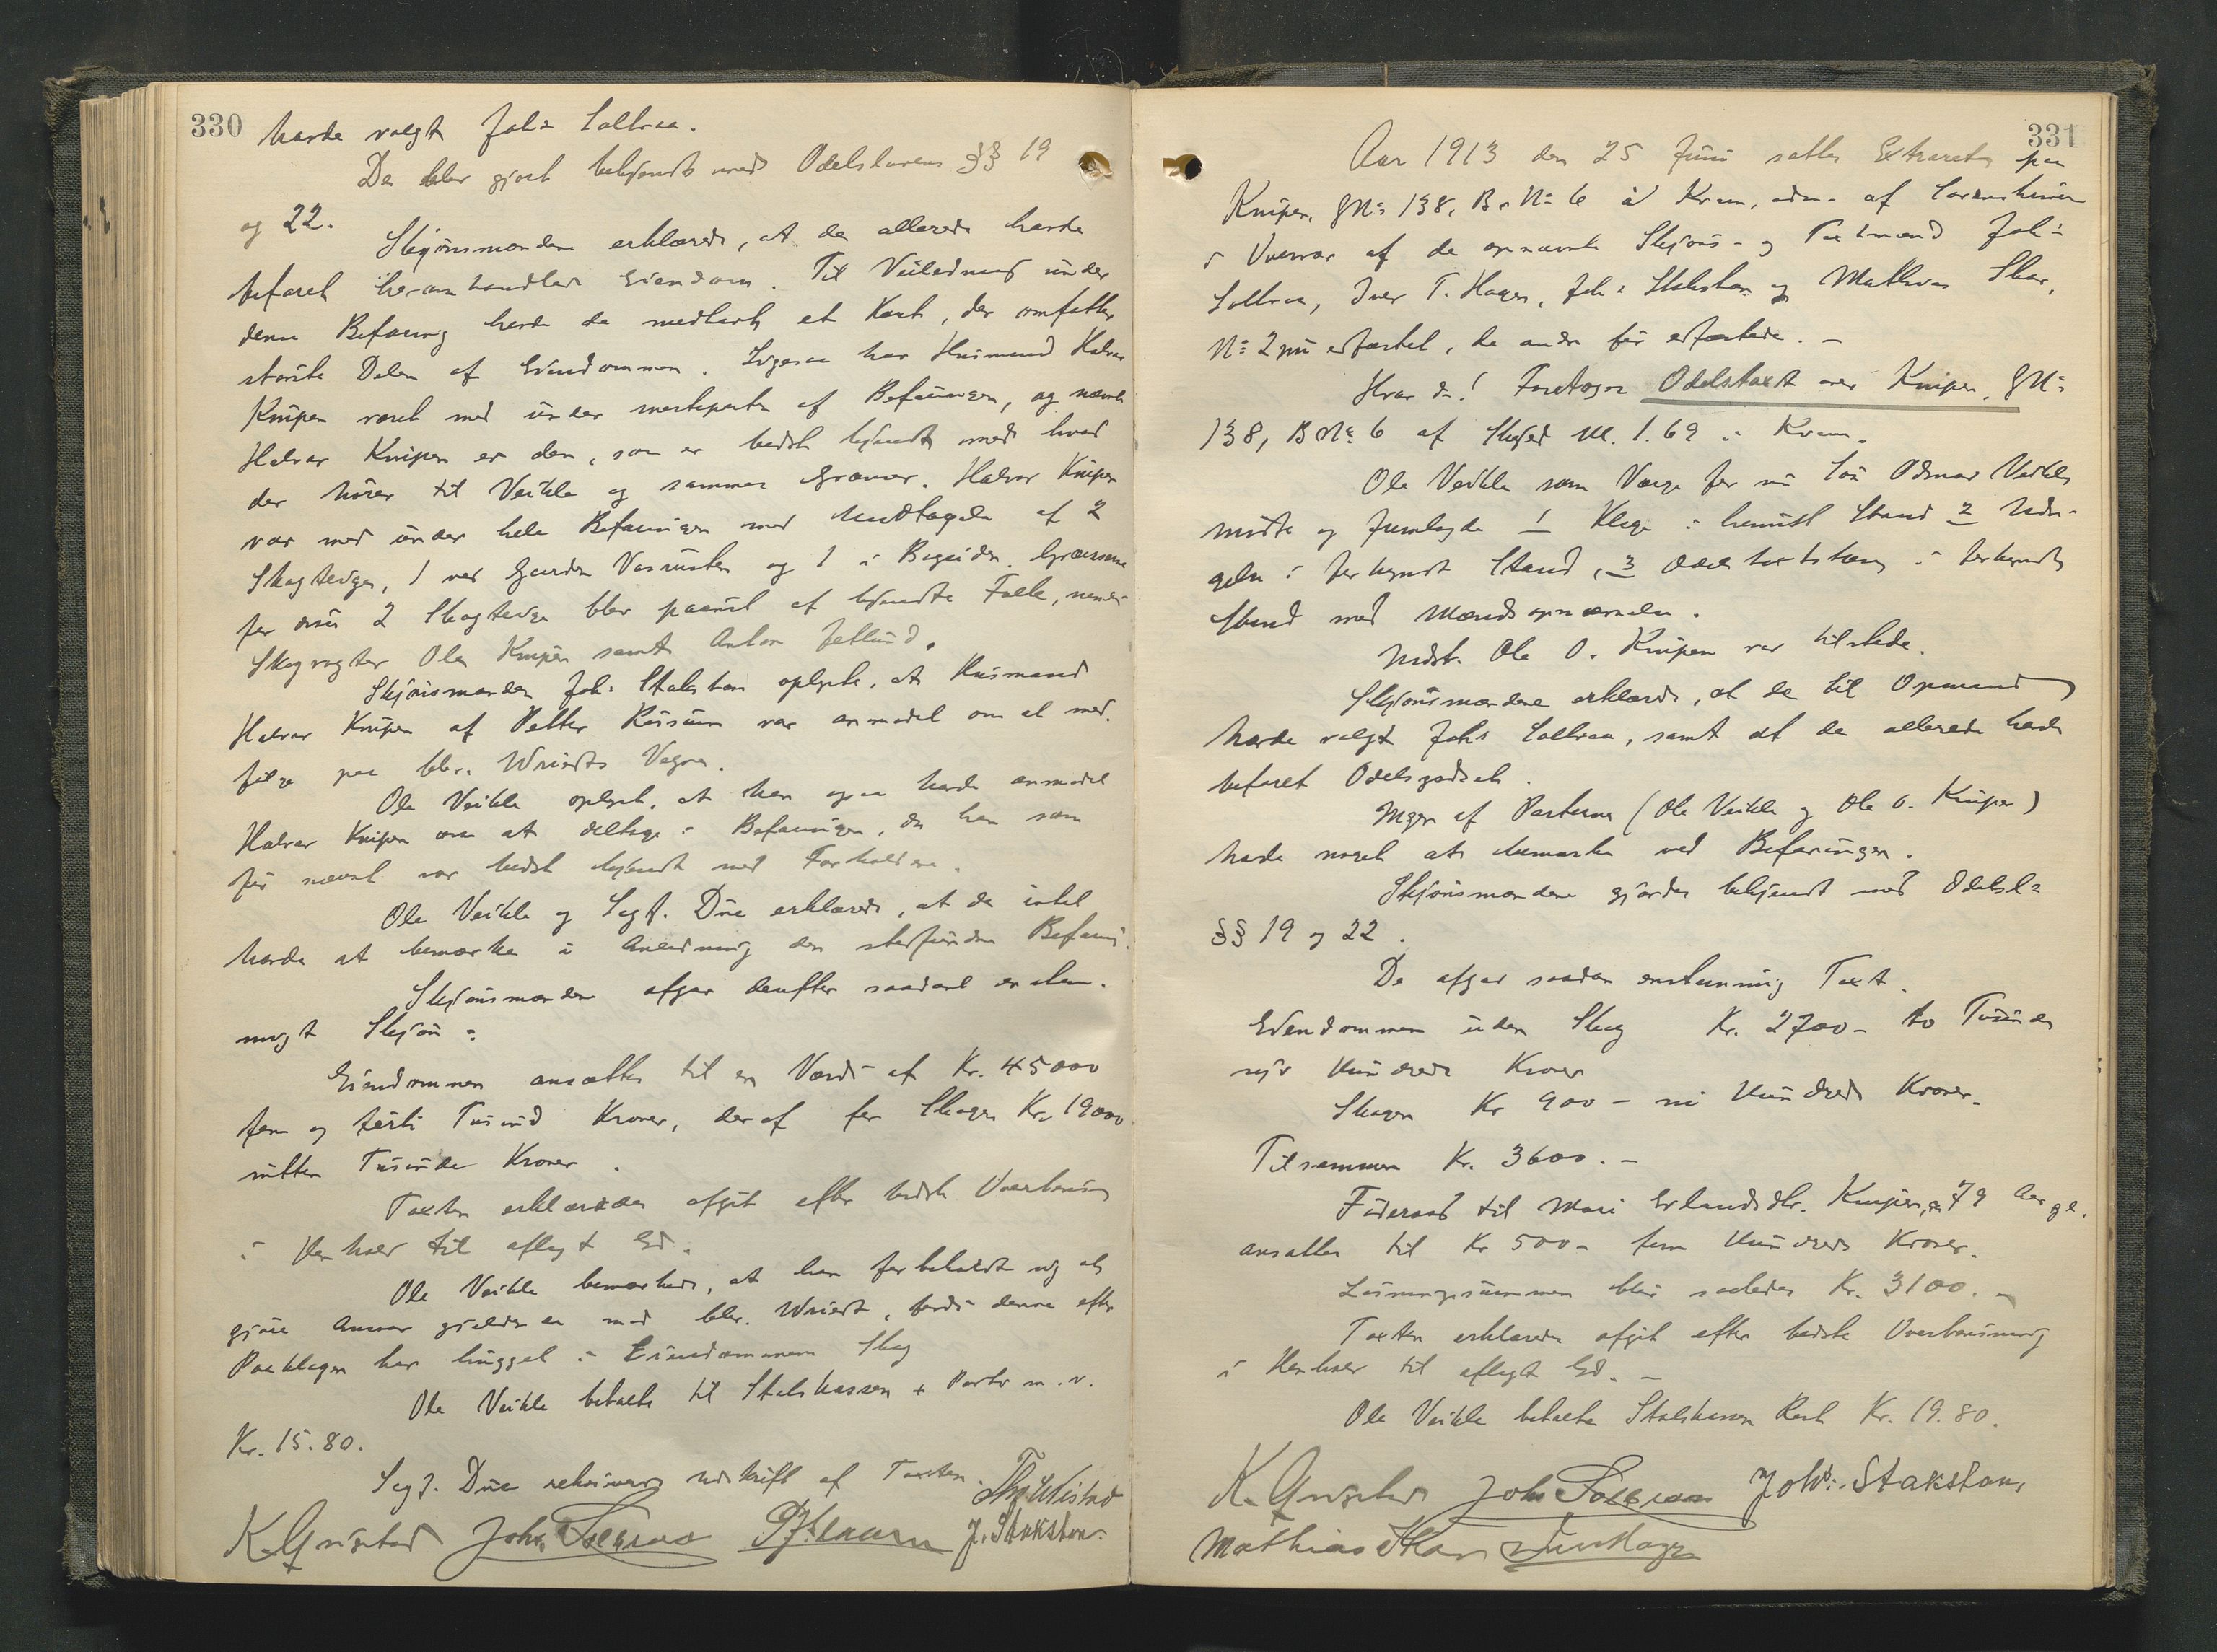 330
havde valgt Joh: Solbraa.
De blev gjort bekjendt med Odelslovens §§ 19
og 22.
Skjønsmændene erklærede, at de allerede havde
befaret heromhandlede Eiendom. Til Veiledning under
denne Befaring havde de medhavt et Kart, der omfatter
største Delen af Eiendommen. Ligesaa har Husmand Halvor
Knipen været med under mesteparten af Befaringen, og nævnte
Halvor Knipen er den, som er bedst kjendt med hvad
der hører til Veikle og sammes Grænser. Halvor Knipen
var med under hele Befaringen med Undtagelse af 2
Skogteiger, 1 ved Gaarden Vasrusten og 1 i Bøgeiden. Grænserne
for disse 2 Skogteige blev paavist af kjendte Folk, nemlig
Skogvogter Ole Knipen samt Anton Jetlund.
Skjønsmanden Joh: Stakston oplyste, at Husmand
Halvor Knipen af Petter Rusum var anmodet om at med-
følge paa Wriedts Vegne.
Ole Veikle oplyste, at han ogsaa havde anmodet
Halvor Knipen om at deltage i Befaringen, da han som
før nævnt var bedst kjendt med Forholdene.
Ole Veikle og Sagf. Due erklærede, at de intet
havde at bemærke i Anledning den stedfundne Befaring.
Skjønsmændene afgav derefter saadant enstem-
migt Skjøn:
Eiendommen ansættes til en Værdi af Kr. 45000
fem og førti Tusind Kroner, deraf for Skogen Kr. 19000
nitten Tusinde Kroner.
Taxten erklæredes afgit efter bedste Overbevisning
i Henhold til aflagt Ed.
Ole Veikle bemærkede, at han forbeholdt sig at
gjøre Ansvar gjeldende mod Wriedt, fordi denne efter
Paaklagen har hugget i Eiendommens Skog
Ole Veikle betalte til Statskassen + Porto m. v.
Kr. 15.80.
Sagf. Due rekvirerede Udskrift af Taxten.
K. Grigstad Joh. Solbraa J. Stakston.
331
Aar 1913 den 25 Juni sattes Extraret paa
Knipen, GNo 138, BrNo 6 i Kvam, adm. af Sorenskriveren
i Overvær af de opnævnte Skjøns- og Taxtmænd Joh:
Solbraa, Iver T. Hagen, Joh: Stakston og Mathias Skar,
No 2 nu edfæstet, de andre før edfæstede. –
Hvor da! Foretoges Odelstaxt over Knipen, GNo
138, BNo 6 af Skyld M. 1.69 i Kvam.
Ole Veikle som Værge for sin Søn Odmar Veikle
mødte og fremlagde 1 Klage i hævnet Stand 2 Udtagelse i forkyndt Stand, 3 Odelstaxtstævning i forkyndt
Stand med Mandsopnævnelse.
Indst. Ole O. Knipen var tilstede.
Skjønsmændene erklærede, at de til Opmand
havde valgt Joh: Solbraa, samt at de allerede havde
befaret Odelsgodset.
Ingen af Parterne (Ole Veikle og Ole O. Knipen)
havde noget at bemærke ved Befaringen.
Skjønsmændene gjordes bekjendt med Odelsl:
§§ 19 og 22.
De afgav saadan enstemmig Taxt.
Eiendommen uden Skog Kr. 2700 – to Tusinde
syv Hundrede Kroner
Skogen Kr 900 – ni Hundrede Kroner.
Tilsammen Kr. 3600. –
Føderaad til Mari Erlandsdtr. Knipen, 79 Aar gl.
ansættes til Kr 500 – fem Hundrede Kroner.
Løsningssummen blir saaledes Kr. 3100. –
Taxten erklæredes afgit efter bedste Overbevisning
i Henhold til aflagt Ed. –
Ole Veikle betalte Statskassen Rest Kr. 19.80.
K. Grigstad Joh Solbraa Joh: Stakston,
Mathias Skar Iver Hagen